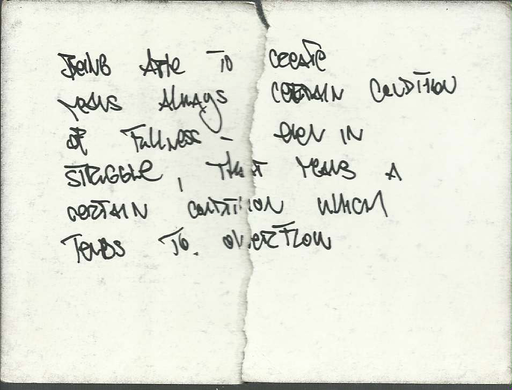 BEING ABLE TO CREATE
MEANS ALWAYS CERTAIN CONDITION
OF FULLNESS - EVEN IN
STRUGGLE, THAT MEANS A
CERTAIN CONDITION WHICH
TENDS TO. OVERFLOW